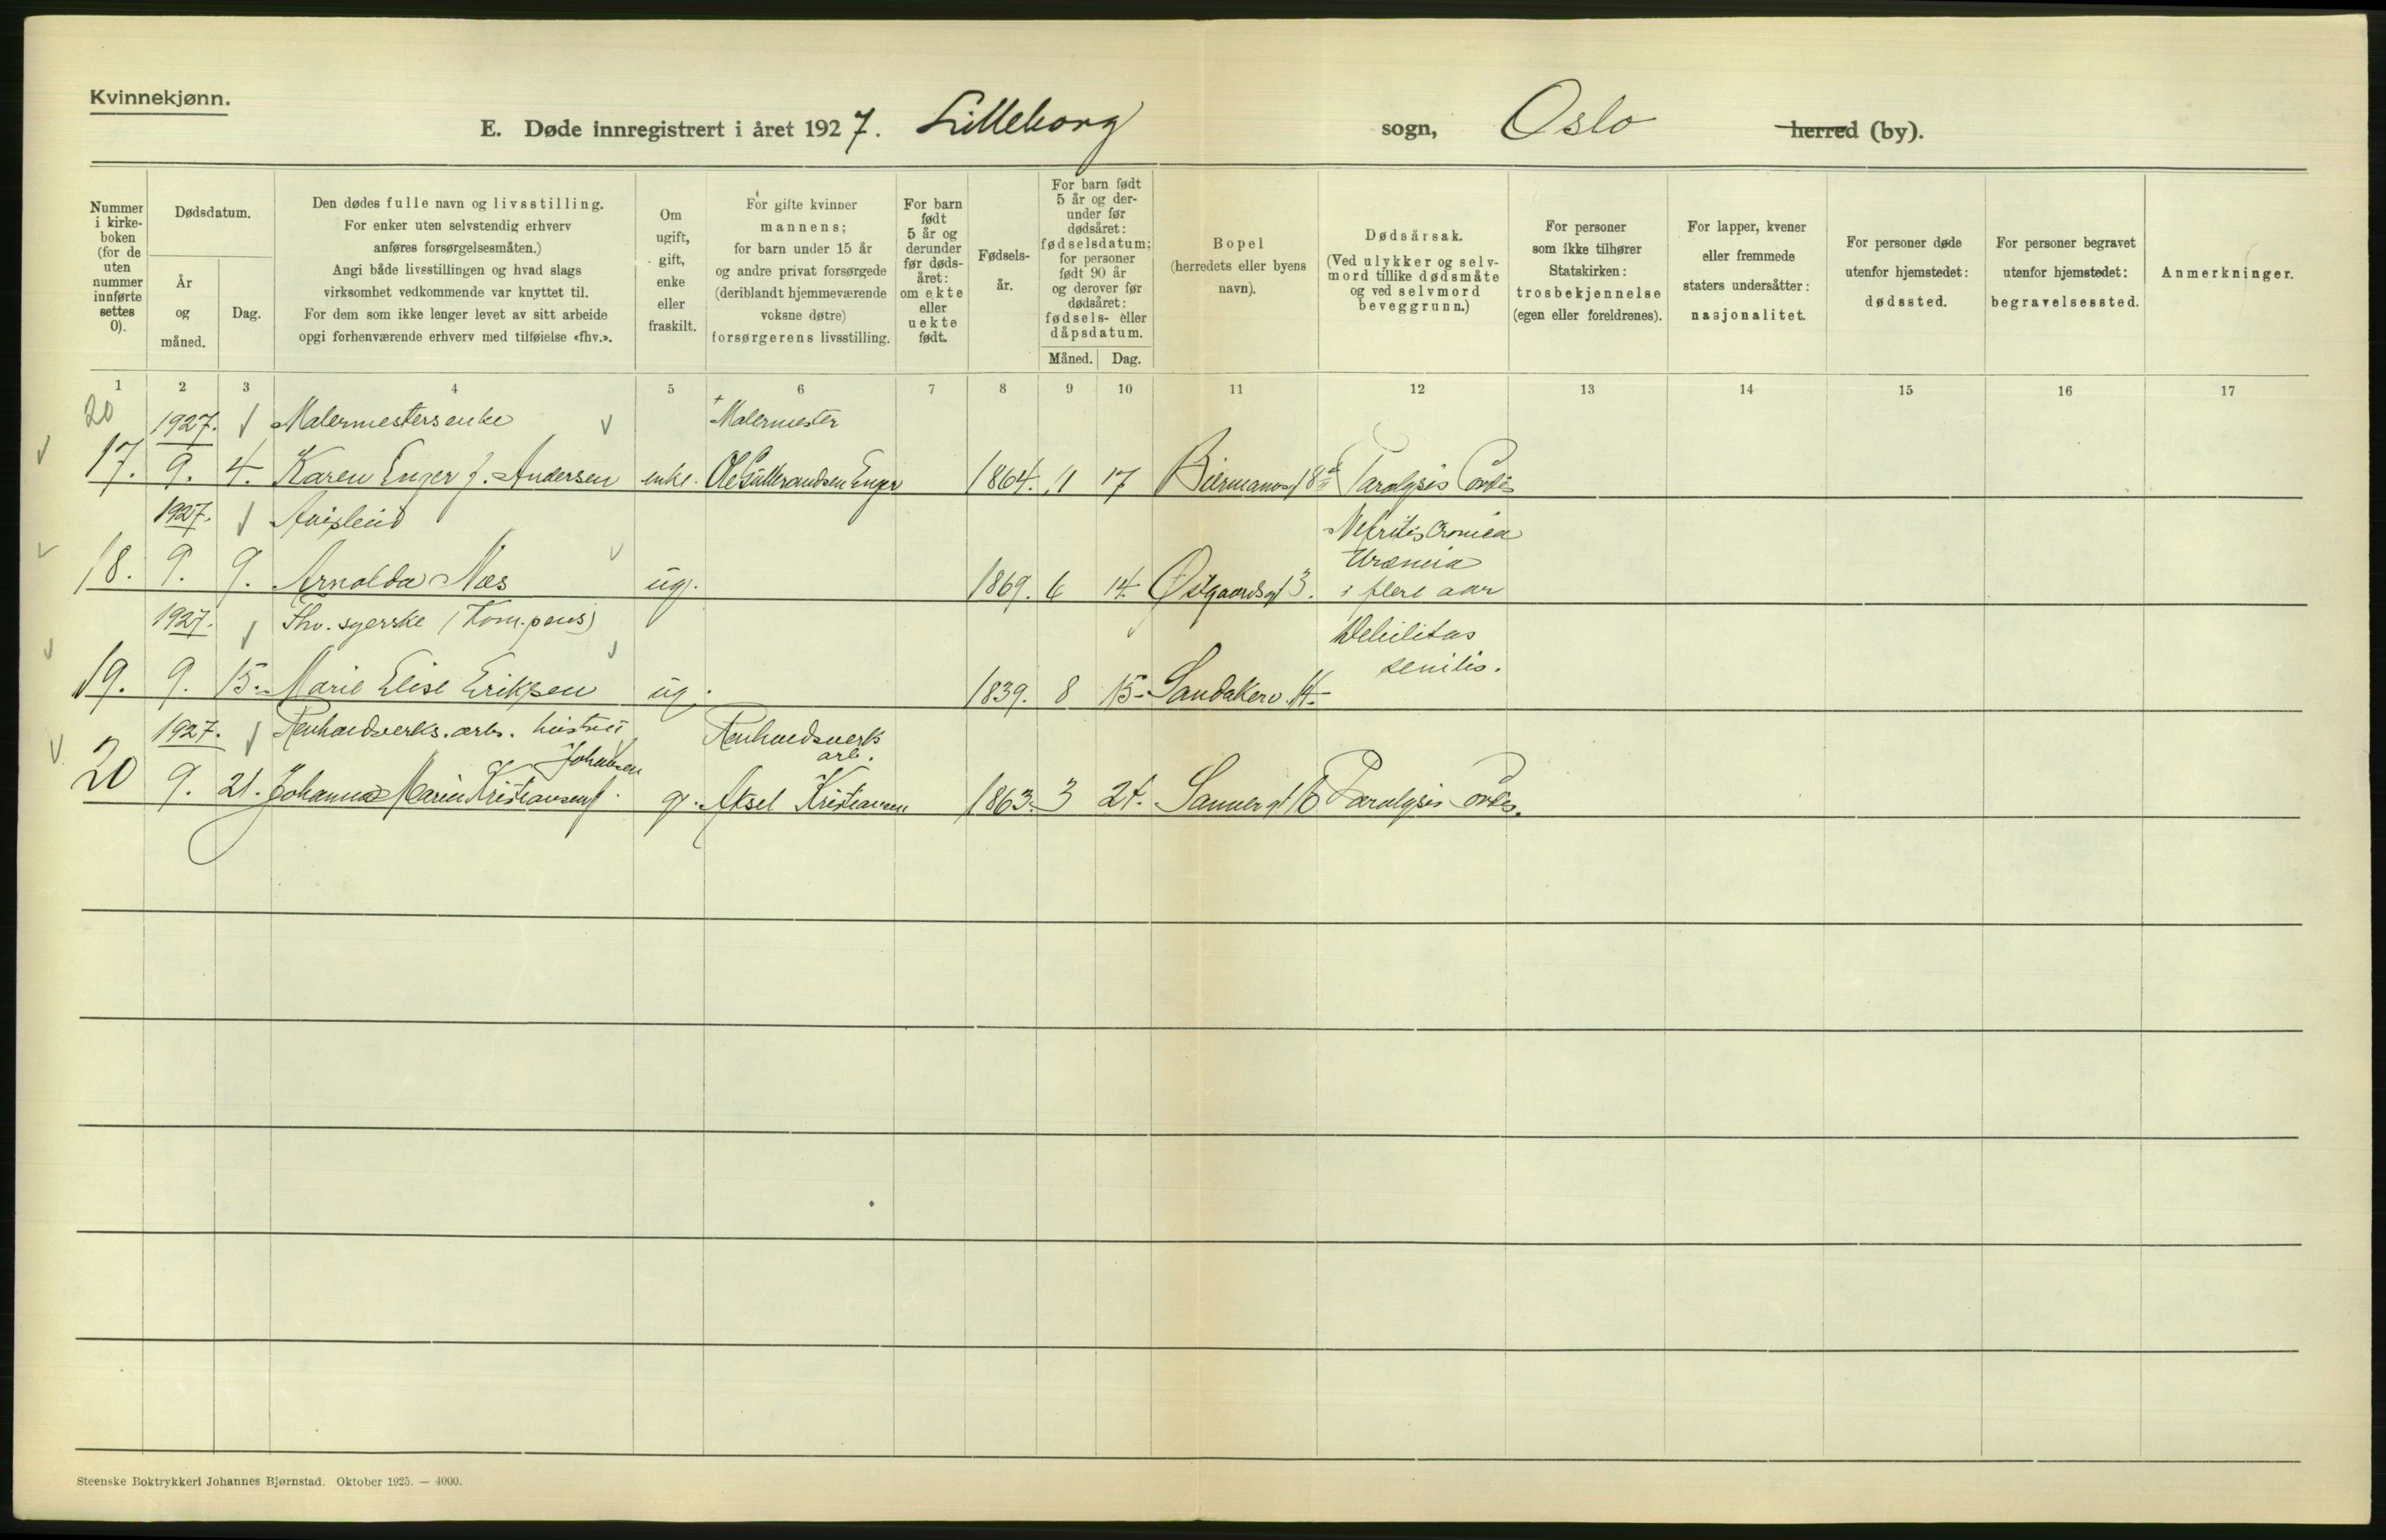 Kvinnekjønn.
E. Døde innregistrert i året 1927. Lilleborg sogn, Oslo herred (by).
Nummer i kirke- boken (for de uten nummer innførte settes 0).
Dødsdatum.
År og måned.
Dag.
Den dødes fulle navn og livsstilling.
For enker uten selvstendig erhverv
anføres forsørgelsesmåten.)
Angi både livsstillingen og hvad slags
virksomhet vedkommende var knyttet til.
For dem som ikke lenger levet av sitt arbeide
opgi forhenværende erhverv med tilføielse «fhv.».
Om ugift, gift, enke eller fraskilt.
For gifte kvinner
mannens;
for barn under 15 år
og andre privat forsørgede
(deriblandt hjemmeværende
voksne døtre)
forsørgerens livsstilling.
For barn født 5 år og derunder før døds- året: om ekte eller uekte født.
Fødsels- år.
For barn født 5 år og der- under før dødsåret: fødselsdatum; for personer født 90 år og derover før dødsåret: fødsels- eller dåpsdatum.
Måned. Dag.
Bopel
(herredets eller byens
navn).
Dødsårsak.
(Ved ulykker og selv-
mord tillike dødsmåte
og ved selvmord
beveggrunn.)
For personer
som ikke tilhører
Statskirken:
trosbekjennelse
(egen eller foreldrenes).
For lapper, kvener
eller fremmede
staters undersåtter:
nasjonalitet.
For personer døde
utenfor hjemstedet:
dødssted.
For personer begravet
utenfor hjemstedet:
begravelsessted.
Anmerkninger.
1 2 3 4 5 6 7 8 9 10 11 12 13 14 15 16 17
20 1927. Malermestersenke Malermester
17. 9. 4. Karen Enger f. Andersen enke. Ole Gulbrandsen Enger 1864. 11 17 Biermannsg 18 Paralysis Cordis
1927.
Nefritis Cronica
Uræmia
18. 9. 9. Arnolda Næs ug. 1869. 6 14. Østgaardsgt 3. i flere aar
1927. Fhv. syerske (Kom. pens) Debilitas
senilis.
19. 9. 15. Marie Elise Eriksen ug. 1839. 8 15 Sandakerv. 14
1927. Renholdsverks. arb. hustru Renholdsverks
arb.
Johansen
20 9. 21. Johanna Marie Kristiansen f. g. Aksel Kristiansen 1863. 3 24. Sannergt 16 Paralysis Cordis.
Steenske Boktrykkeri Johannes Bjørnstad. Oktober 1925. — 4000.